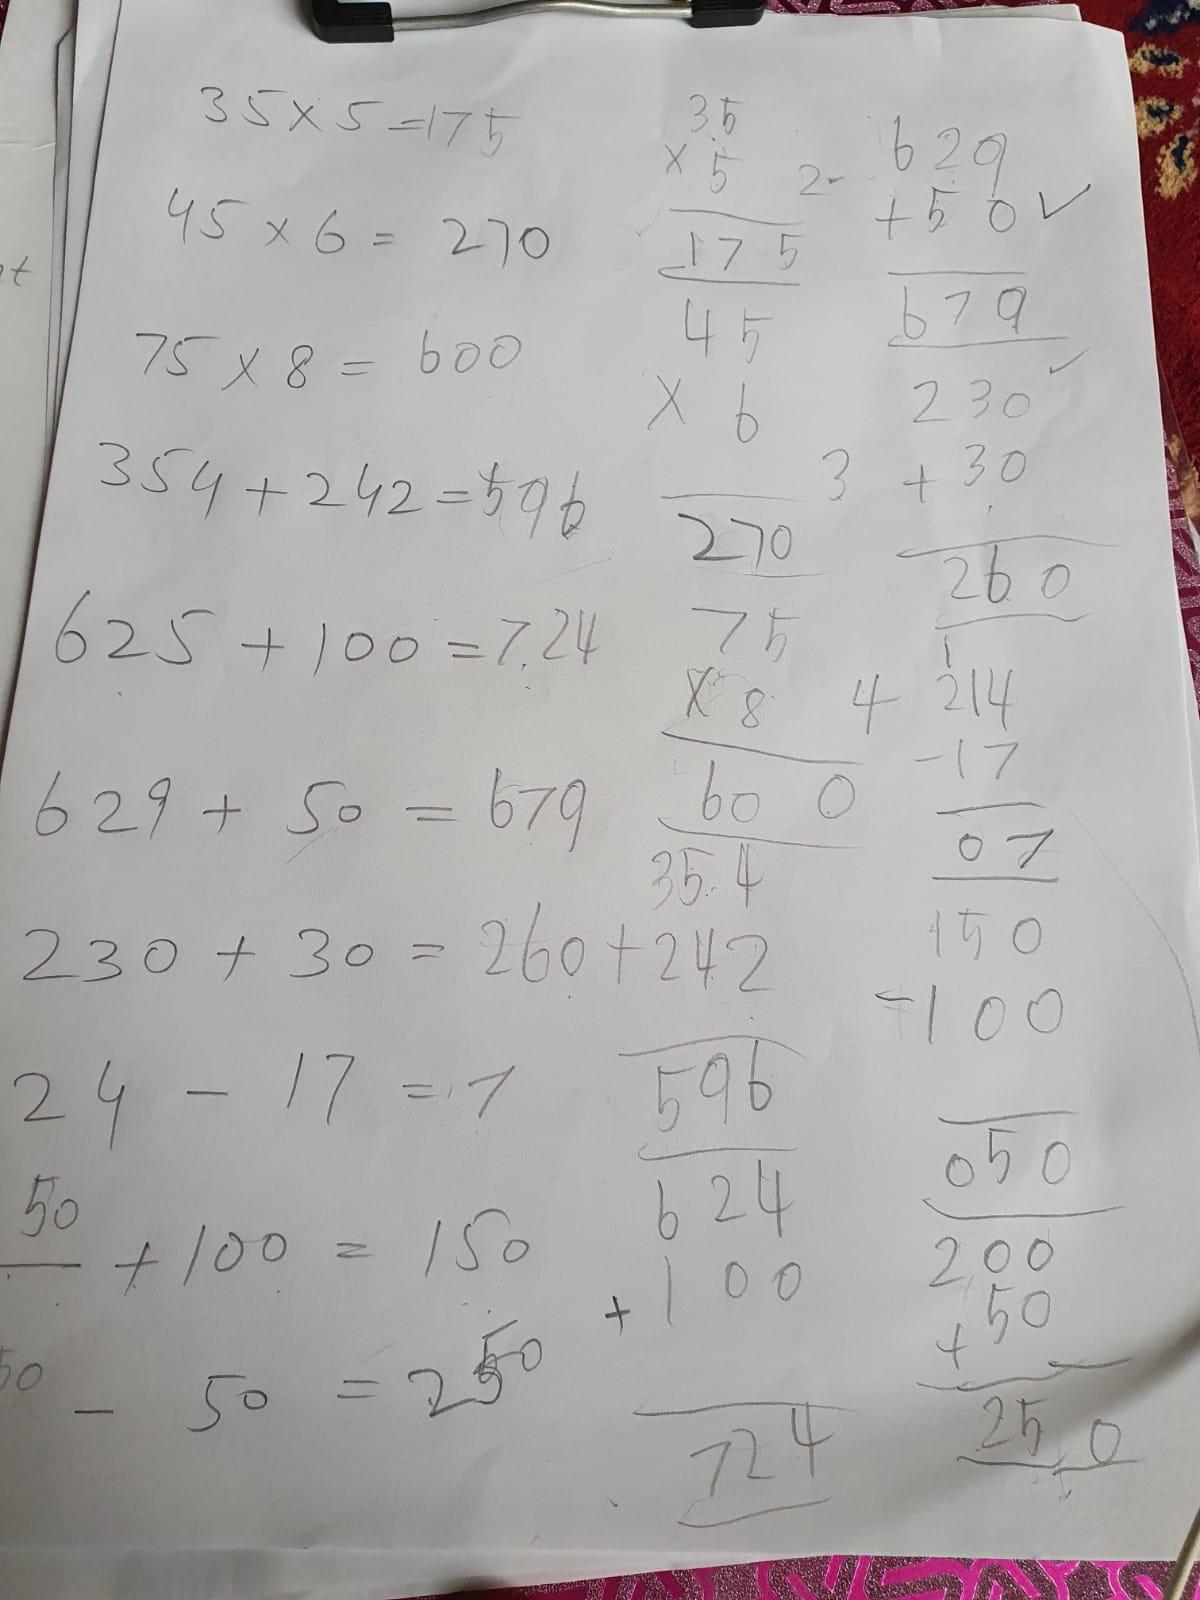 35 x 5 = 175
45 x 6 = 270
75 x 8 = 600
354 + 242 = 596
625 + 100 = 724
629 + 50 = 679
230 + 30 = 260
24 - 17 = 7
50 + 100 = 150
50 - 50 = 250
35
x 5
175
45
x 6
270
75
x 8
600
354
+ 242
596
624
+ 100
724
2- 629
+ 50 ✓
679
230 ✓
3 + 30
260
1
4 214
- 17
07
150
- 100
050
200
+ 50
250